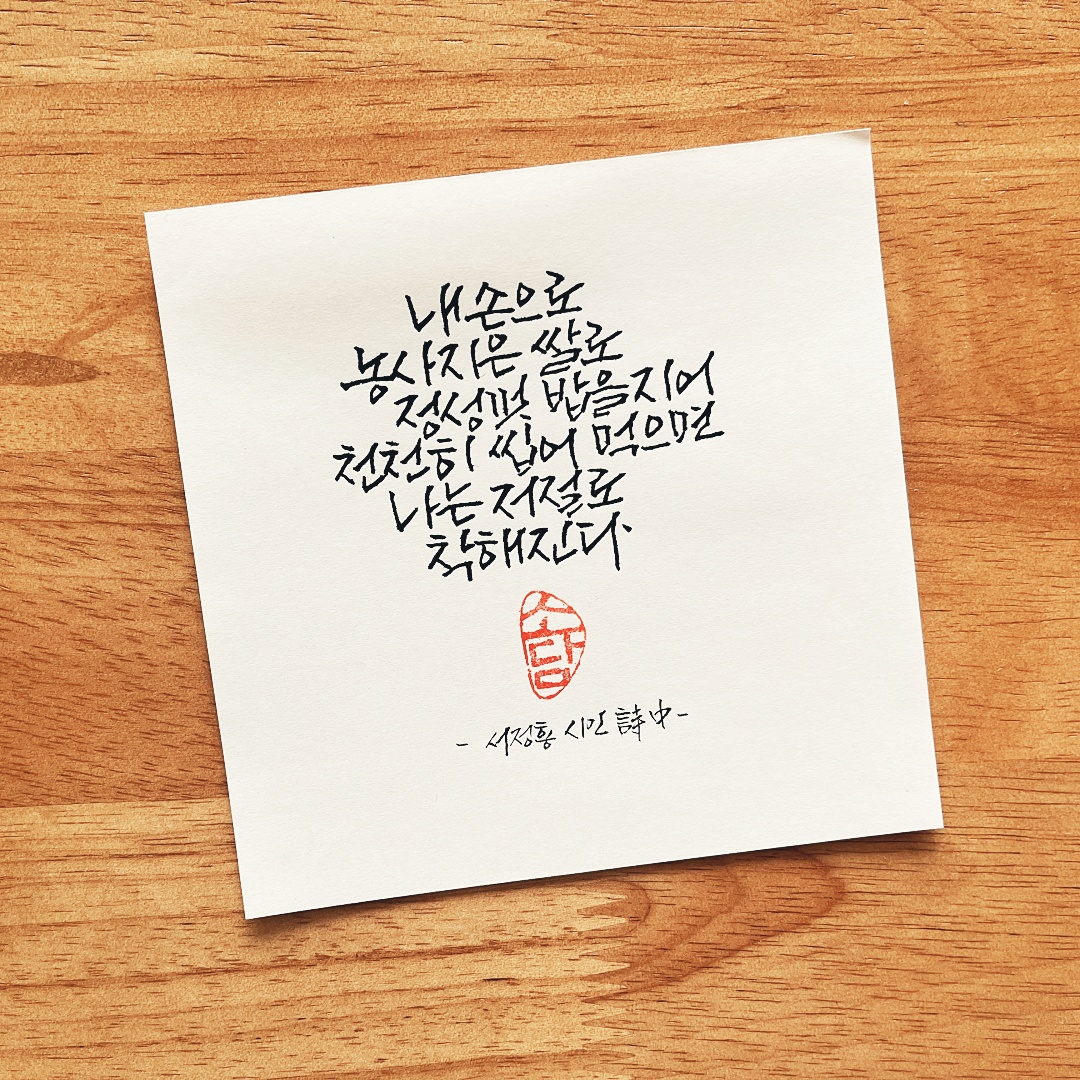 내 손으로
농사지은 쌀로
정성껏 밥을 지어
천천히 씹어 먹으면
나는 저절로
착해진다.
소담
- 서정홍 시인 詩中 -